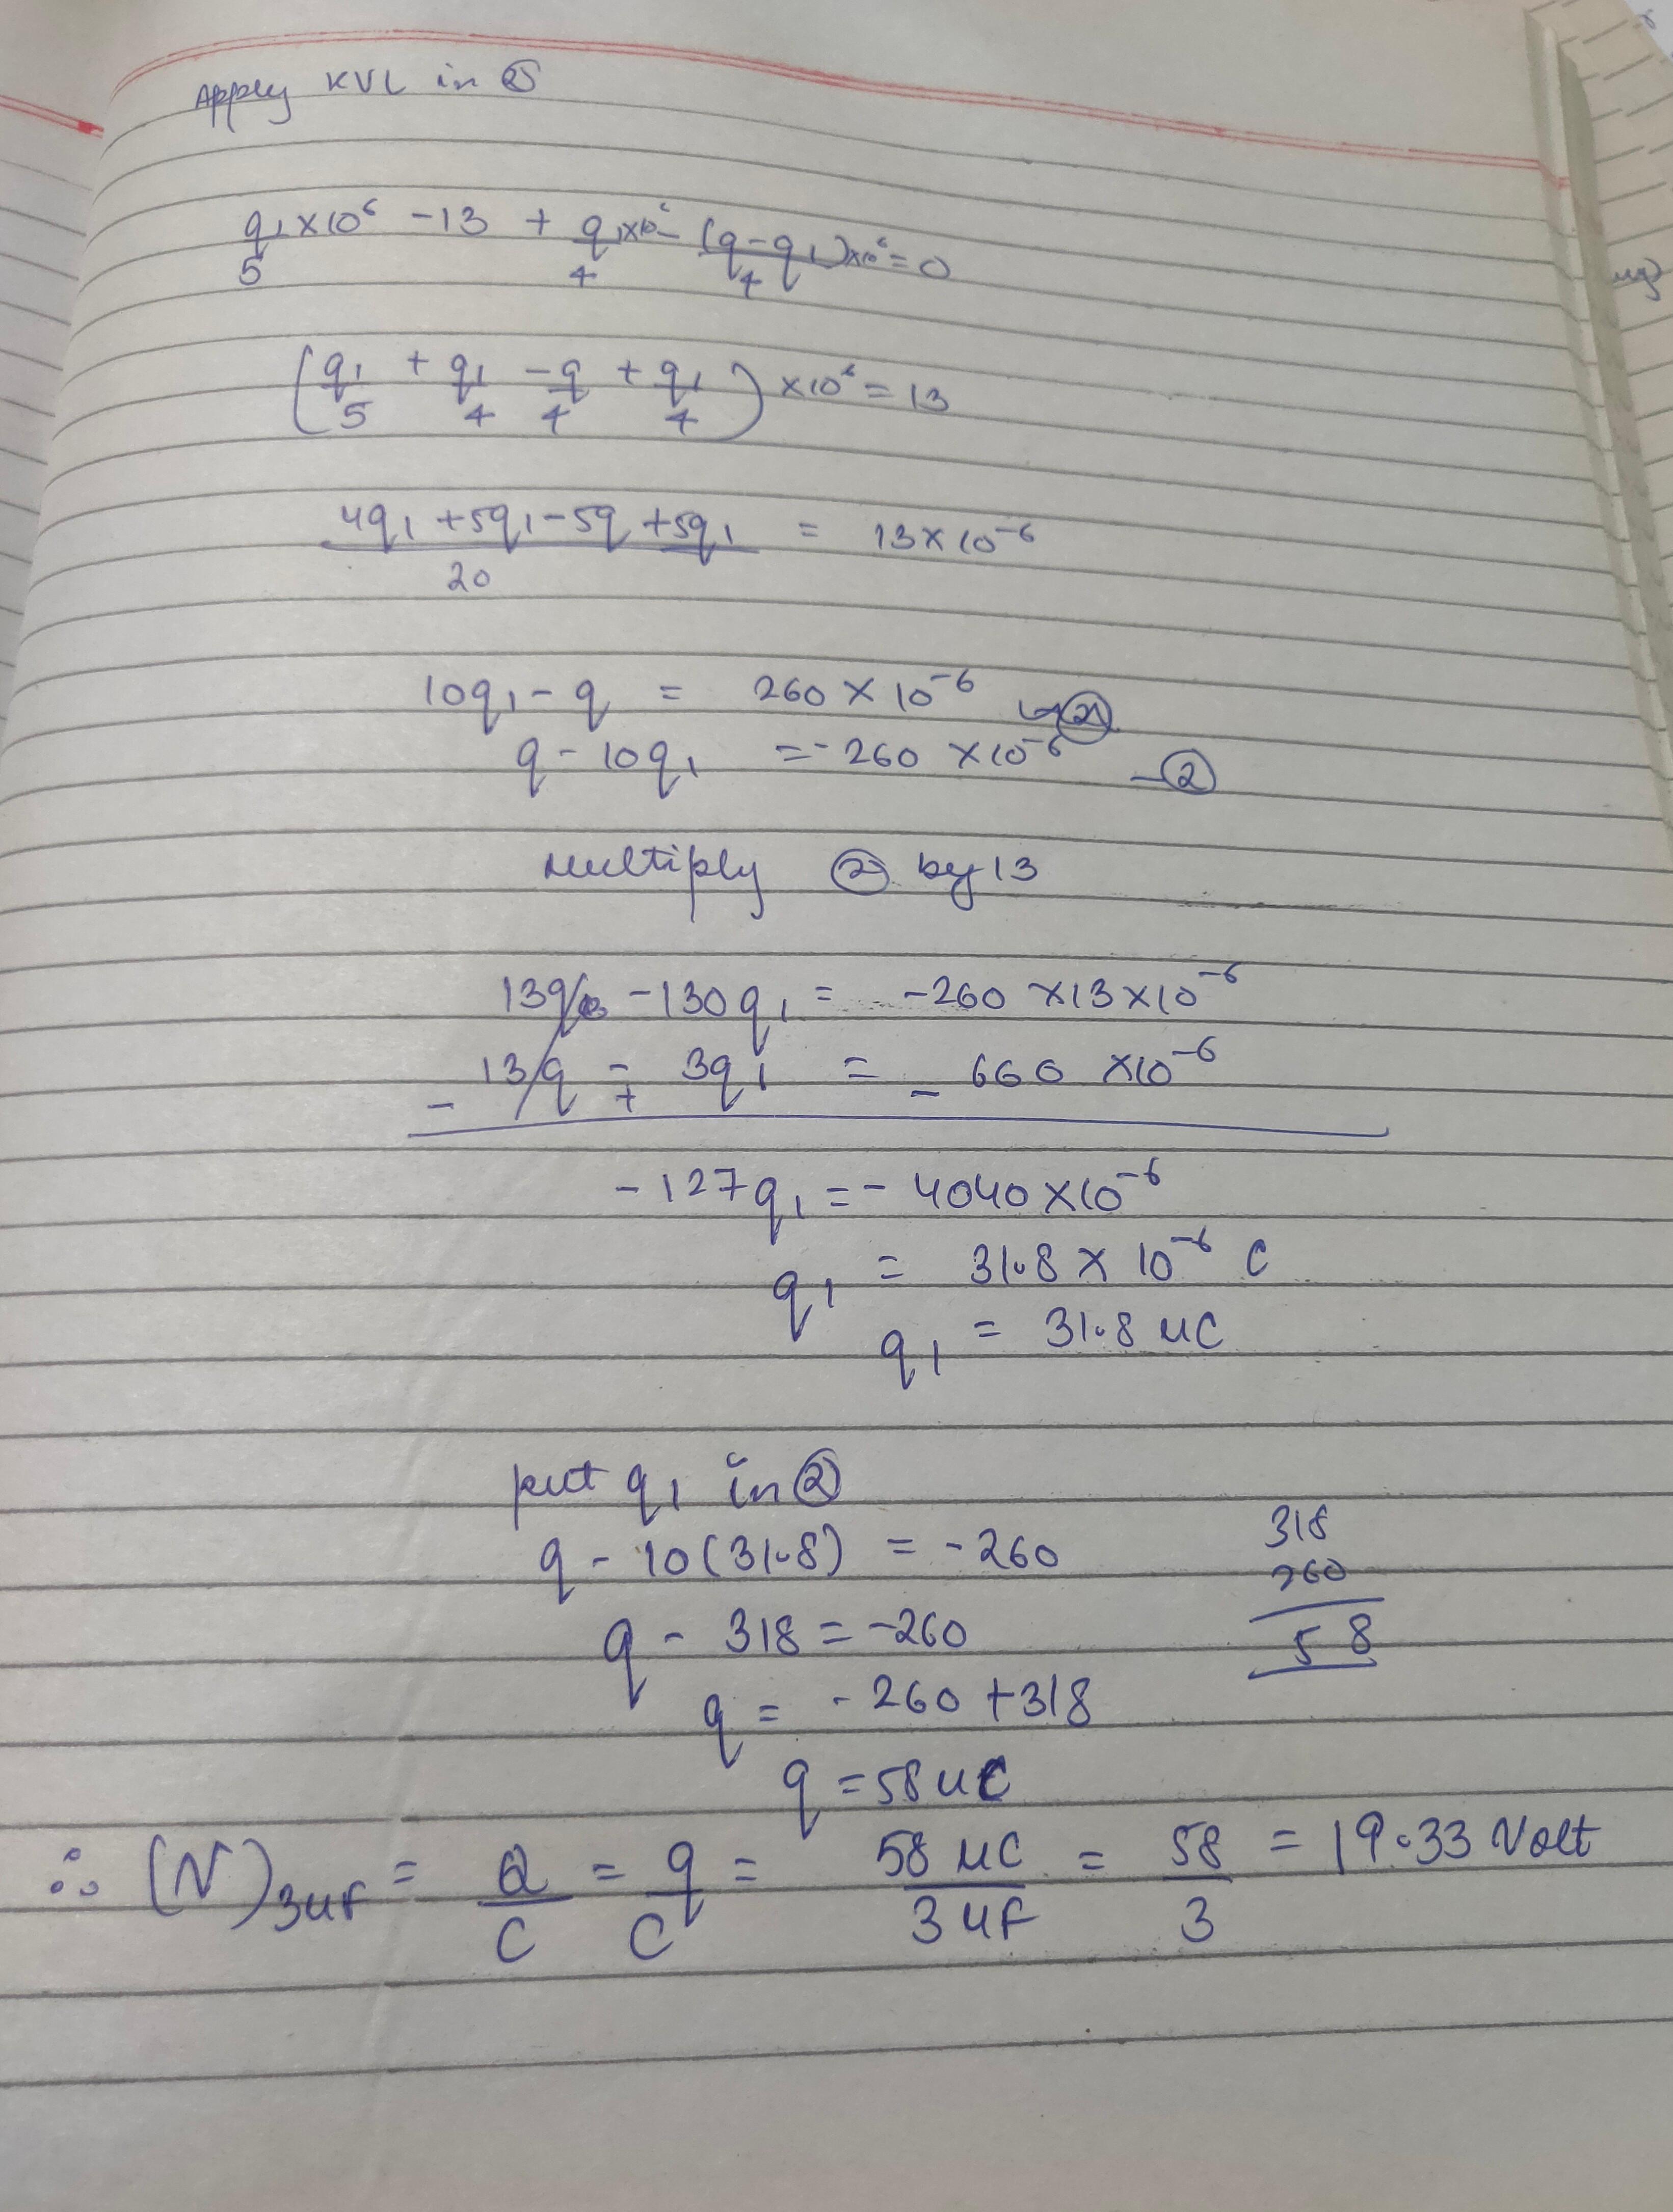 Apply KVL in ②
q₁×10⁶/5 - 13 + q₁×10⁶/4 - (q-q₁)×10⁶/4 = 0
(q₁/5 + q₁/4 - q/4 + q₁/4) ×10⁶ = 13
4q₁ + 5q₁ - 5q + 5q₁/20 = 13×10⁻⁶
10q₁ - q = 260 × 10⁻⁶
q - 10q₁ = -260 ×10⁻⁶ -②
Multiply ② by 13
13q - 130q₁ = -260 ×13×10⁻⁶
13q - 3q₁ = 660 ×10⁻⁶
- + -
-127q₁ = -4040×10⁻⁶
q₁ = 31.8 × 10⁻⁶ C
q₁ = 31.8 uC
put q₁ in ②
q - 10(31.8) = -260
318
260
58
q - 318 = -260
q = -260 +318
q = 58 uC
∴ (V)3uF = Q/C = q/C = 58 uC/3 uF = 58/3 = 19.33 Volt